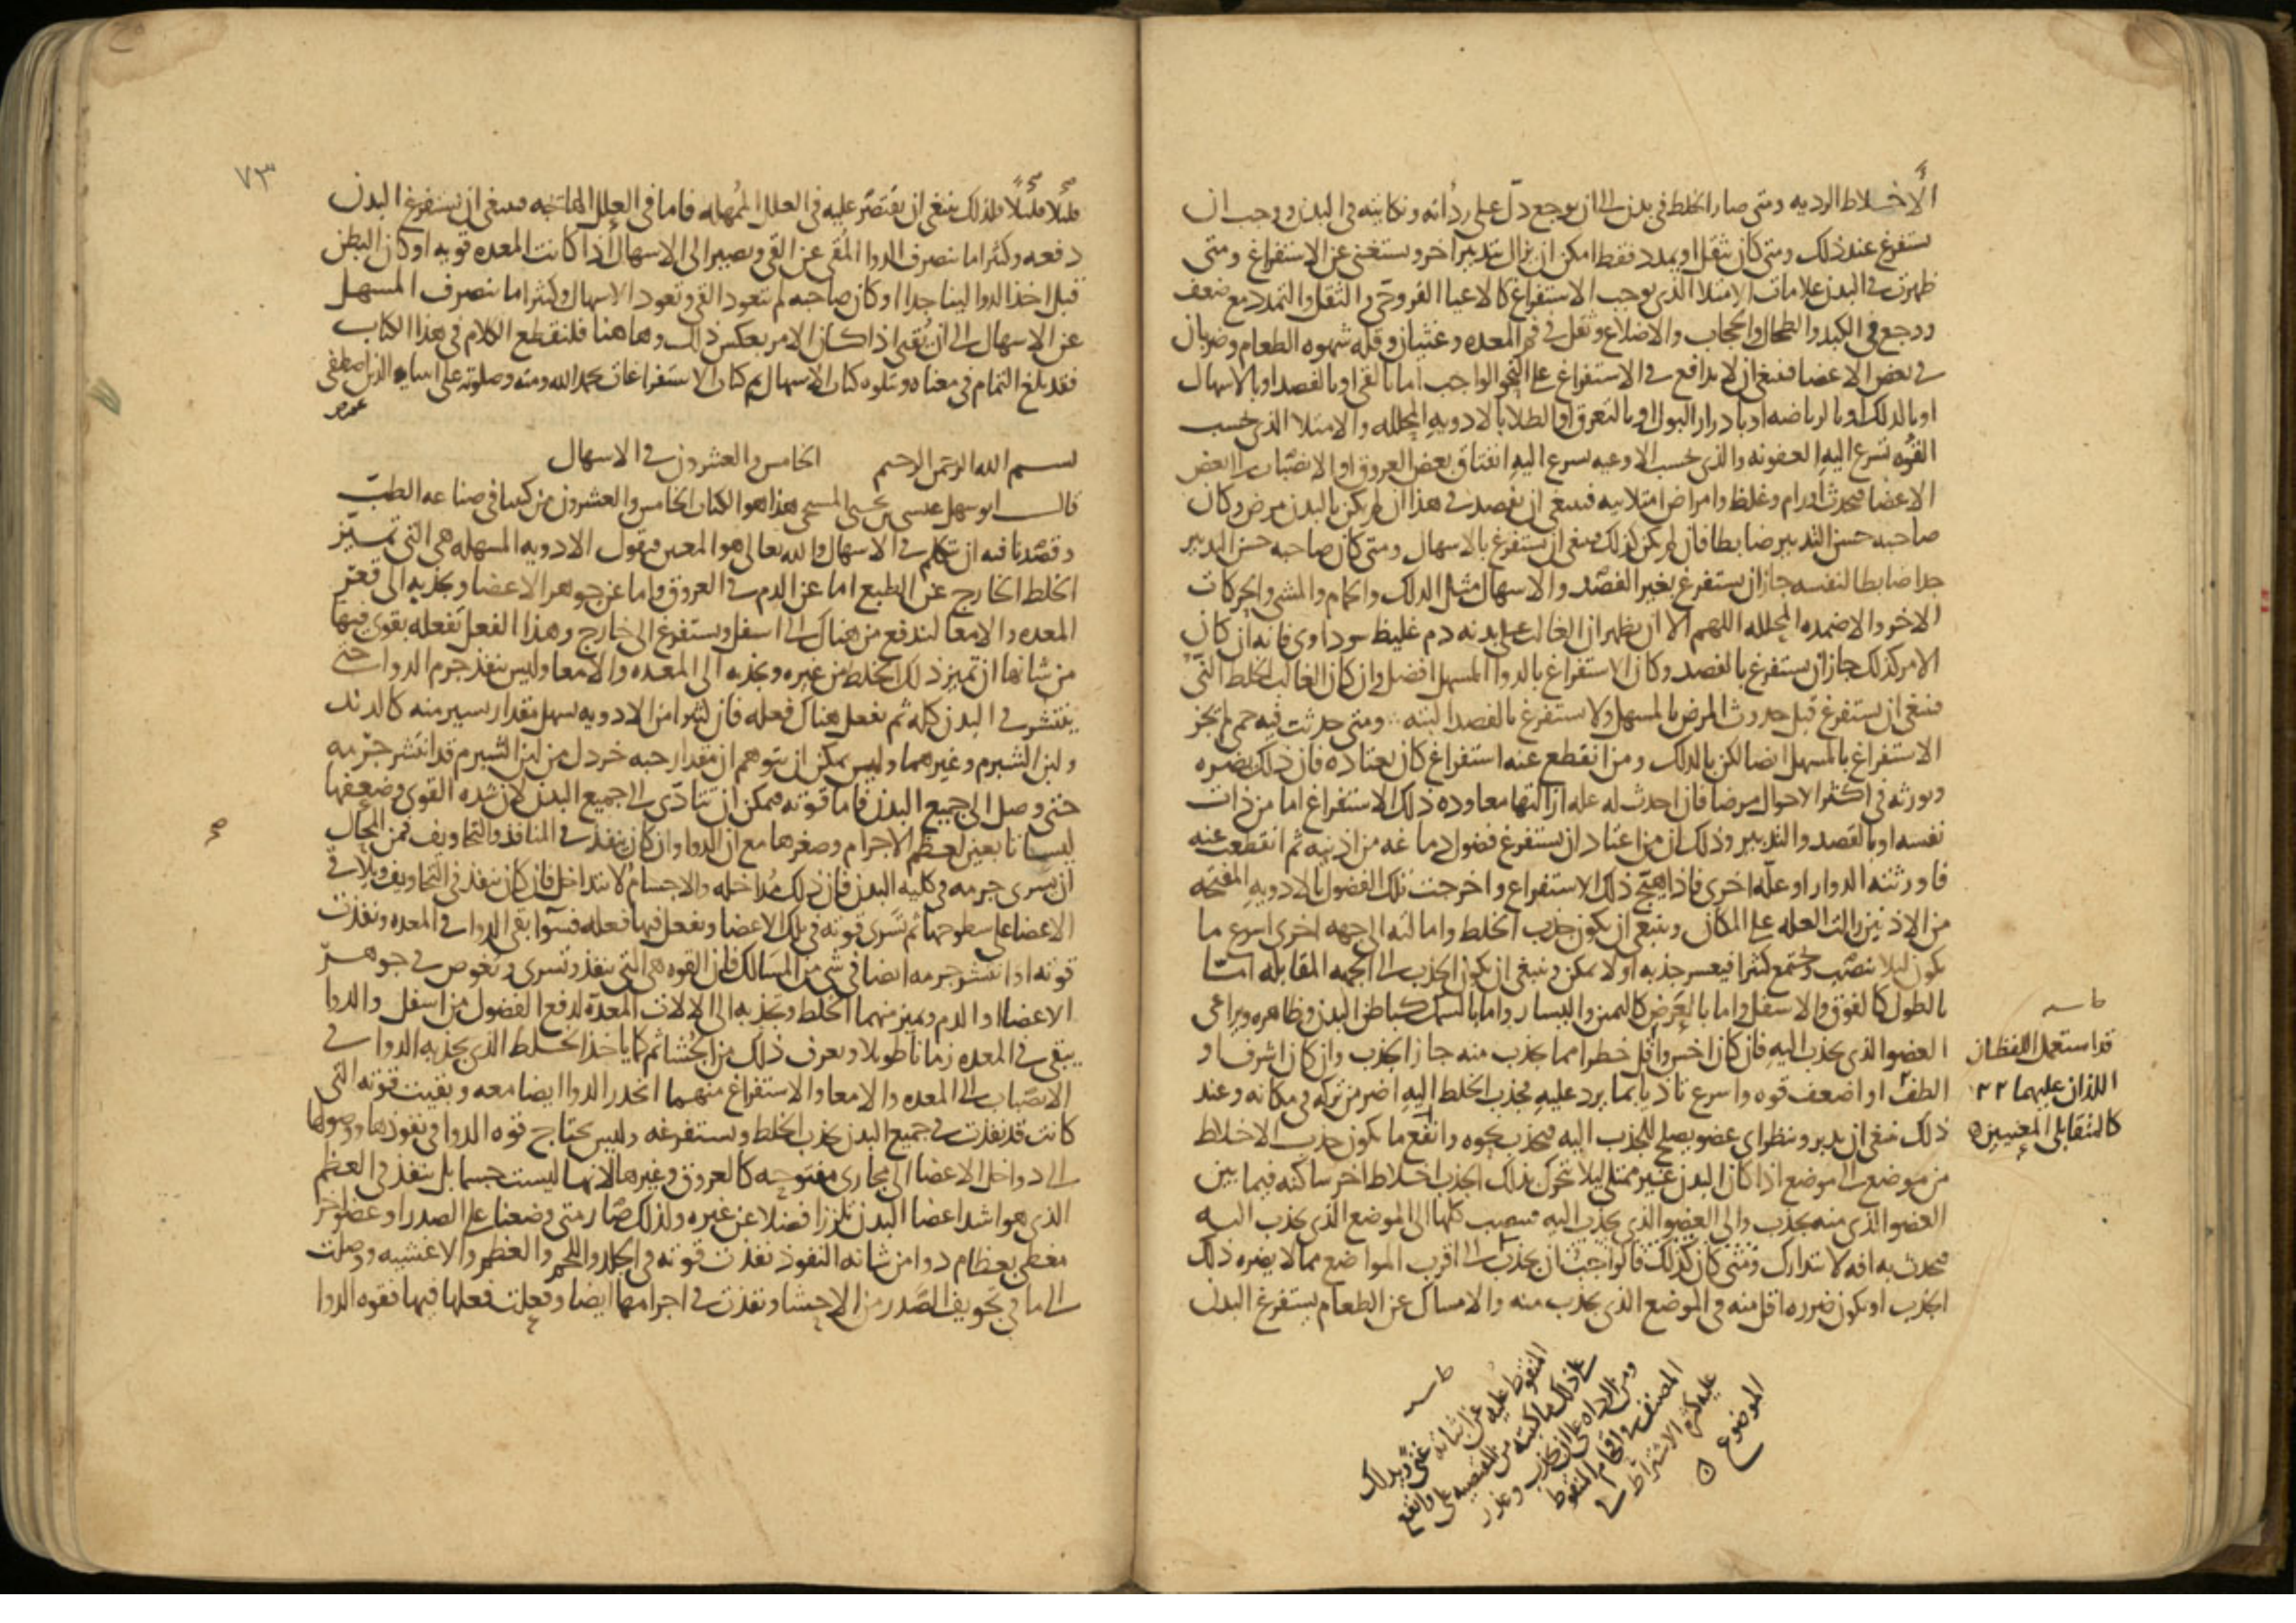 الأخلاط الرديه ومتى صار الخلط في بدن الى ان يوجع دل على رداته ونكايته في البدن ووجب ان
يستفرغ عند ذلك ومتى كان يثقل او يمدد فقط امكن ان يزال بتدبير اخر ويستغنى عن الاستفراغ ومتى
ظهرت في البدن علامات الامتلا الذي يوجب الاستفراغ كالاعيا القروحي والثقل والتمدد مع ضعف
ووجع في الكبد والطحال والحجاب والاضلاع وثقل في فم المعده وغثيان وقله شهوه الطعام وضربان
في بعض الاعضا فينبغي ان لا يدافع في الاستفراغ على النحو الواجب اما بالقي او بالفصد او بالاسهال
او بالدلك او بالرياضه او بادرار البول او بالتعرق او الطلا بالادويه المحلله والامتلا الذي بحسب
القوه تسرع اليه العفونه والذي بحسب الاوعيه يسرع اليه انفتاق بعض العروق او الانصباب الى بعض
الاعضا فيحدث اورام وغلظ وامراض امتلاييه فينبغي ان يفصد في هذا ان لم يكن بالبدن مرض وكان
صاحبه حسن التدبير ضابطا فان لم يكن كذلك فينبغي ان يستفرغ بالاسهال ومتى كان صاحبه حسن التدبير
جدا ضابطا لنفسه جاز ان يستفرغ بغير الفصد والاسهال مثل الدلك والحمام والمشي والحركات
الاخر والاضمده المحلله اللهم الا ان يظهر ان الغالب على بدنه دم غليظ سوداوي فانه ان كان
الامر كذلك جاز ان يستفرغ بالفصد وكان الاستفراغ بالدوا المسهل افضل وان كان الغالب الخلط الني
فينبغي ان يستفرغ قبل حدوث المرض بالمسهل ولا يستفرغ بالفصد البته ومتى حدثت فيه حمى لم يجز
الاستفراغ بالمسهل ايضا لكن بالدلك ومن انقطع عنه استفراغ كان يعتاده فان ذلك يضره
ويورثه في اكثر الاحوال مرضا فان احدث له عله ازالتها معاوده ذلك الاستفراغ اما من ذات
نفسه او بالقصد والتدبير وذلك ان من اعتاد ان يستفرغ فضول دماغه من اذنيه ثم انقطعت عنه
فاورثته الدوار او علة اخرى فاذا هيج ذلك الاستفراغ واخرجت تلك الفضول بالادويه المفتحه
من الاذنين زالت العله على المكان وينبغي ان يكون جذب الخلط وامالته الى جهه اخرى اسرع ما
يكون ليلا ينصب ويجتمع كثيرا فيعسر جذبه او لا يمكن وينبغي ان يكون الجذب الى الجهه المقابله اما
بالطول كالفوق والاسفل واما بالعرض كاليمين واليسار واما بالسمك كباطن البدن وظاهره ويراعى
العضو الذي يجذب اليه فان كان اخس واقل خطرا مما يجذب منه جاز الجذب وان كان اشرف او
الطف او اضعف قوه واسرع تاذيا بما يرد عليه فجذب الخلط اليه اضر من تركه في مكانه وعند
ذلك ينبغي ان يدبر وينظر اي عضو يصلح للجذب اليه فيجذب نحوه وانفع ما يكون جذب الاخلاط
من موضع الى موضع اذا كان البدن غير ممتلي ليلا تتحرك بذلك الجذب اخلاط اخر ساكنه فيما بين
العضو الذي منه يجذب والى العضو الذي يجذب اليه فينصب كلها الى الموضع الذي يجذب اليه
فيحدث به افه لا تتدارك ومتى كان كذلك فالواجب ان يجذب الى اقرب المواضع مما لا يضره ذلك
الجذب او يكون ضرره اقل منه في الموضع الذي يجذب منه والامساك عن الطعام يستفرغ البدن
قد استعمل اللفظان
اللذان عليهما ٢٢
كالمتقابلي المعنيين
المنقوط عليه
الموضوع
٧٣
قليلا قليلا فلذلك ينبغي ان يقتصر عليه في العلل الممهله فاما في العلل الهايجه فينبغي ان يستفرغ البدن
دفعه وكثيرا ما ينصرف الدوا المقي عن القي ويصير الى الاسهال اذا كانت المعده قويه او كان البطن
قبل اخذ الدوا لينا جدا او كان صاحبه لم يتعود القي وتعود الاسهال وكثيرا ما ينصرف المسهل
عن الاسهال الى ان يقي اذا كان الامر بعكس ذلك وهاهنا فلنقطع الكلام في هذا الكتاب
فقد بلغ التمام في معناه ويتلوه كتاب الاسهال تم كتاب الاستفراغات بحمد الله ومنه وصلوته على انبيايه الذين اصطفى
بسم الله الرحمن الرحيم الخامس والعشرون في الاسهال
قال ابو سهل عيسى بن يحيى المسيحي هذا هو الكتاب الخامس والعشرون من كتبنا في صناعه الطب
وقصدنا فيه ان نتكلم في الاسهال والله تعالى هو المعين فنقول الادويه المسهله هي التي تميز
الخلط الخارج عن الطبع اما عن الدم في العروق واما عن جوهر الاعضا وتجذبه الى قعر
المعده والامعا ليندفع من هناك الى اسفل ويستفرغ الى خارج وهذا الفعل تفعله بقوى فيها
من شانها ان تميز ذلك الخلط من غيره وتجذبه الى المعده والامعا وليس ينفذ جرم الدوا حتى
ينتشر في البدن كله ثم يفعل هناك فعله فان كثيرا من الادويه يسهل مقدار يسير منه كالدند
ولبن الشبرم وغيرهما وليس يمكن ان يتوهم ان مقدار حبه خردل من لبن الشبرم قد انتشر جرمه
حتى وصل الى جميع البدن فاما قوته فيمكن ان تتادى الى جميع البدن لان شده القوى وضعفها
ليسا تابعين لعظم الاجرام وصغرها مع ان الدوا وان كان ينفذ في المنافذ والتجاويف فمن المحال
ان يسري جرمه في كليه البدن فان ذلك مداخله والاجسام لا تتداخل فان كان ينفذ في التجاويف ويلاقي
الاعضا على سطوحها ثم تسري قوته في تلك الاعضا ويفعل فيها فعله فسوا بقي الدوا في المعده ونفذت
قوته او انتشر جرمه ايضا في شي من المسالك فان القوه هي التي تنفذ وتسري وتغوص في جوهر
الاعضا او الدم وتميز منهما الخلط وتجذبه الى الالات المعدة لدفع الفضول من اسفل والدوا
يبقى في المعده زمانا طويلا ويعرف ذلك من الجشا ثم كما ياخذ الخلط الذي يجذبه الدوا في
الانصباب الى المعده والامعا والاستفراغ منهما انحدر الدوا ايضا معه وبقيت قوته التي
كانت قد نفذت في جميع البدن تجذب الخلط وتستفرغه وليس يحتاج قوه الدوا في نفوذها ووصولها
الى دواخل الاعضا الى مجاري مفتوحه كالعروق وغيرها لانها ليست جسما بل تنفذ في العظم
الذي هو اشد اعضا البدن تلززا فضلا عن غيره ولذلك صار متى وضعنا على الصدر او عضو اخر
مغطى بعظام دوا من شانه النفوذ نفذت قوته في الجلد واللحم والعظم والاغشيه ووصلت
الى ما في تجويف الصدر من الاحشا ونفذت في اجرامها ايضا وفعلت فعلها فيها فقوه الدوا